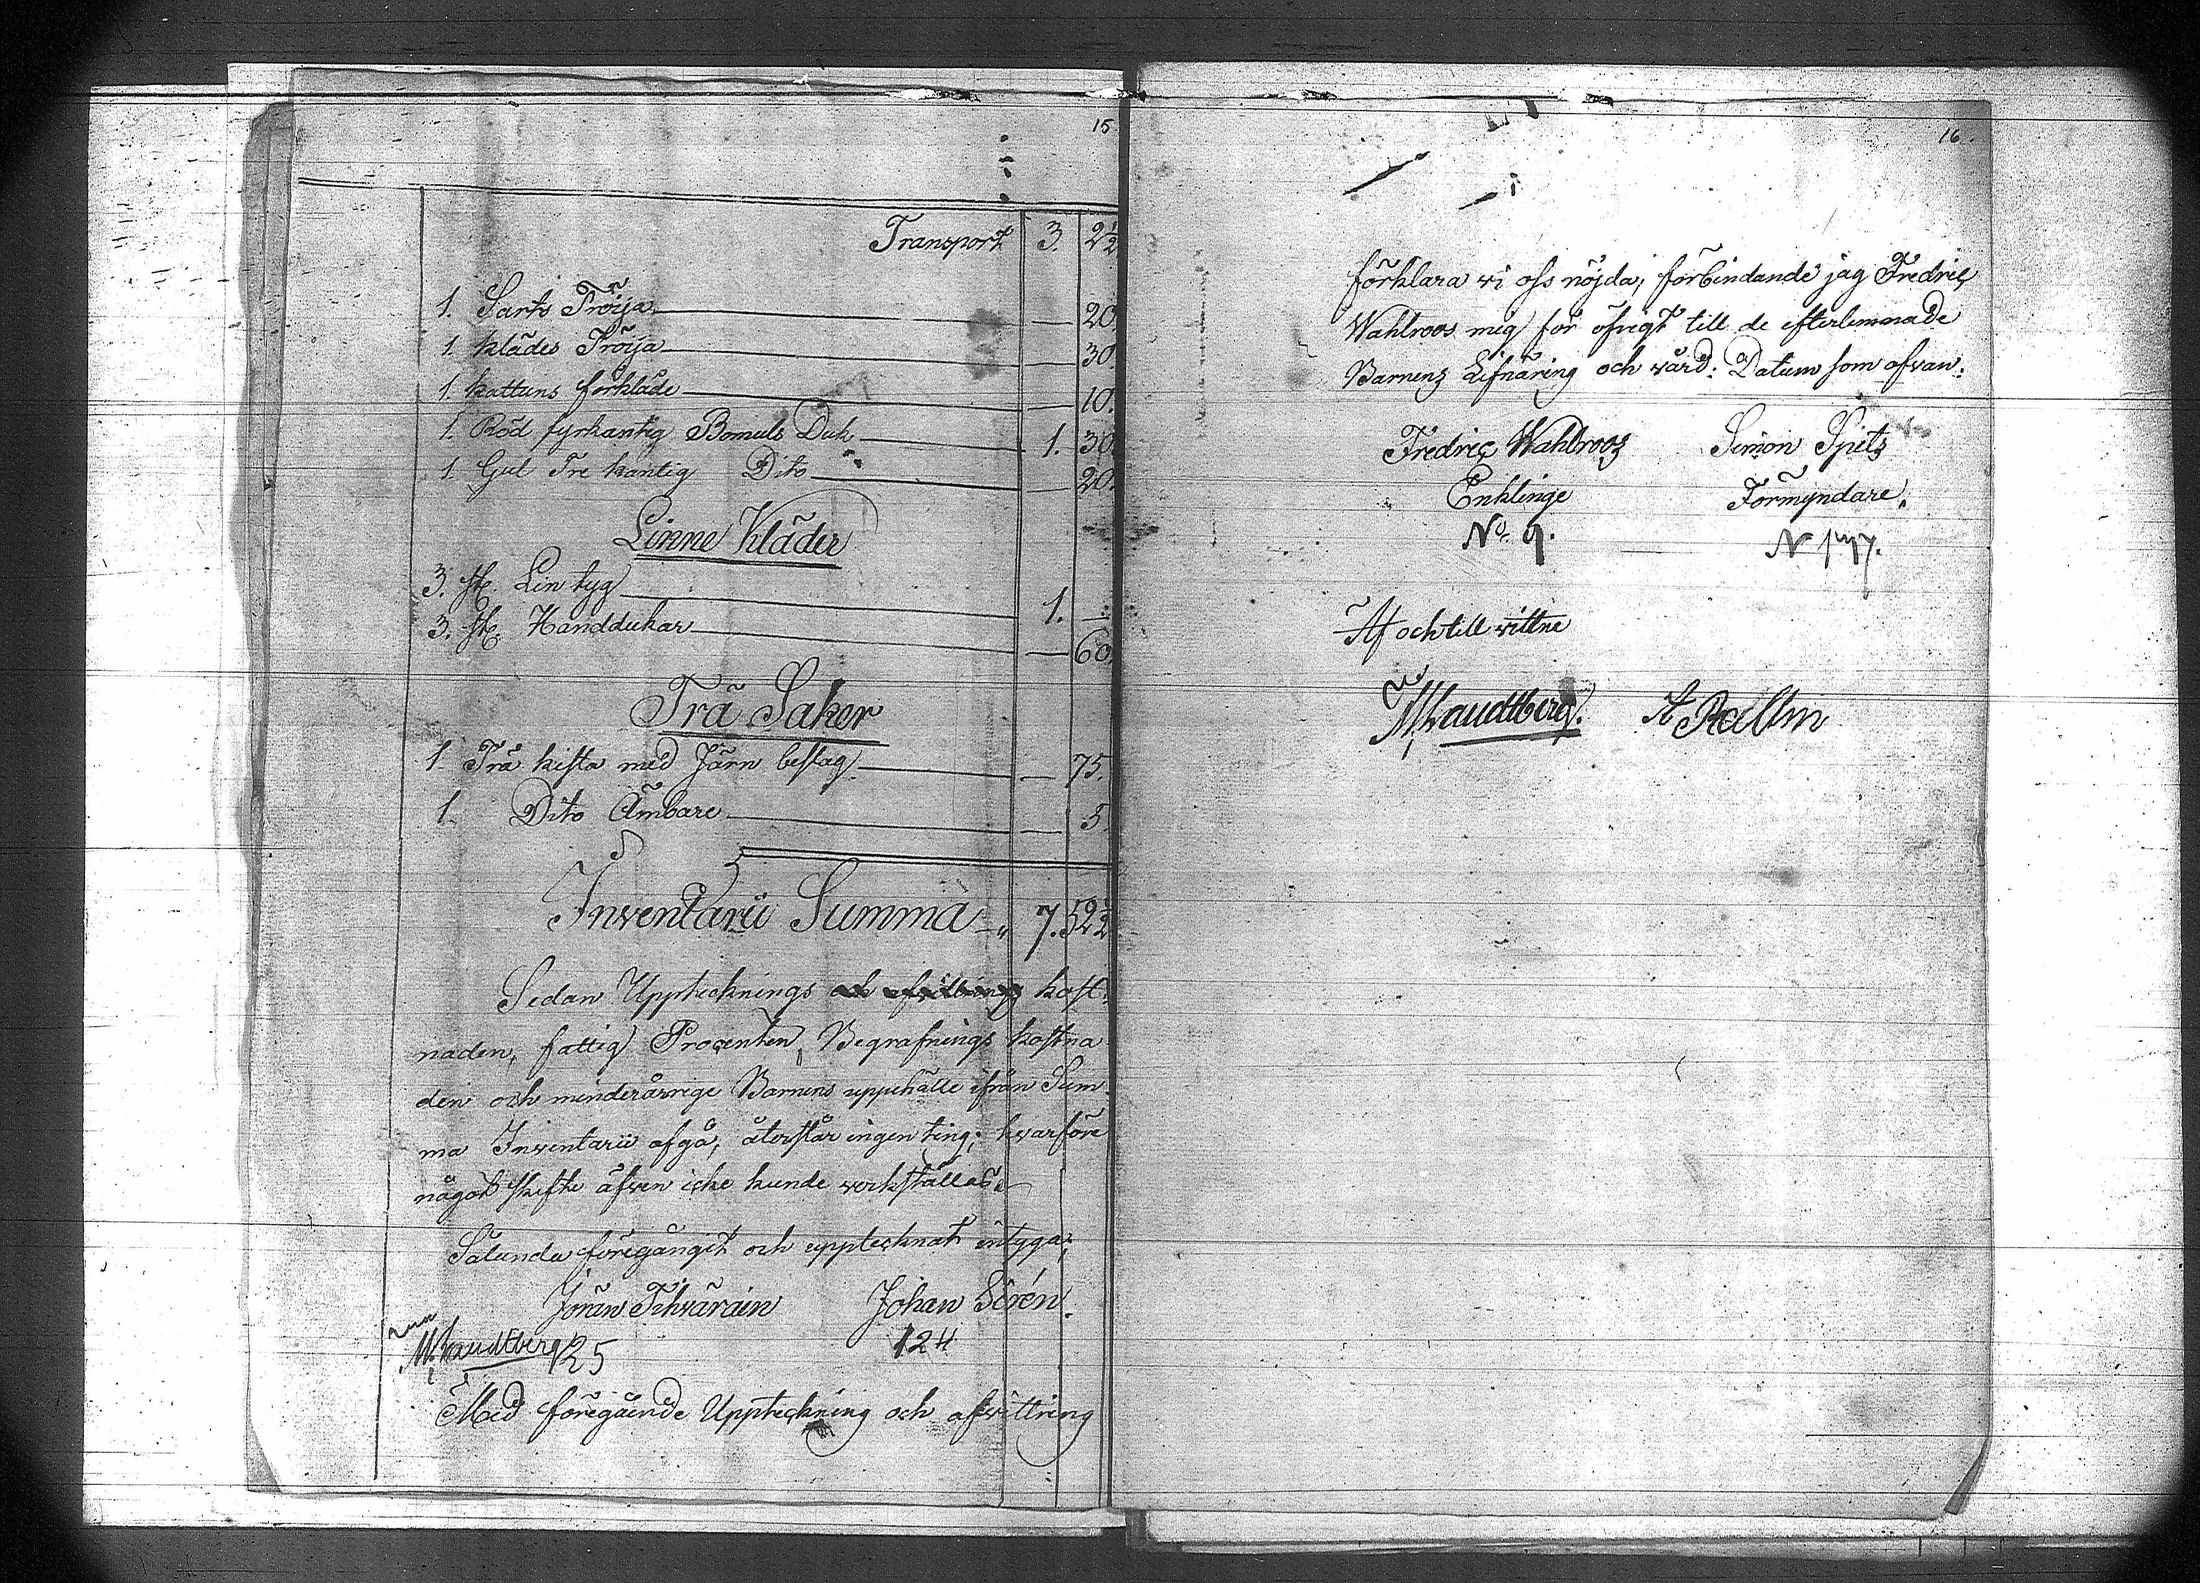 15
Transport 3. 2½
1. Sarts Tröija — 20.
1. klädes Tröija — 30.
1. kattuns förkläde — 10.
1. Röd fyrkantig Bomuls Duk 1. 30.
1. Gul Tre kantig Dito — 20.
Linne Kläder
3. st. Lin tyg 1. —
3. st. Handdukar — 60.
Trä Saker
1. Trä kista med Järn beslag — 75.
1. Dito Ämbare — 5.
Inventarii Summa 7. 52½
Sedan Uppteknings kost
naden, fattig Procenten, Begrafnings kostna
den och minderårige Barnens uppehälle ifrån Sum
ma Inventarii afgå, återstår ingen ting; hvarföre
något skifte äfven icke kunde verkställas.
Sålunda föregångit och upptecknat intyga;
Jöran Tihväräin Johan Sirén.
125 124
Med föregående Uppteckning och afvittring
16.
förklara vi oss nöjda, förbindande jag Fredric
Wahlroos mig för öfrigt till de efterlemnade
Barnens Lifnäring och vård. Datum som ofvan.
Fredric Wahlroos Simon Spets
Enklinge Förmyndare.
No. 9.
Af och till vittne